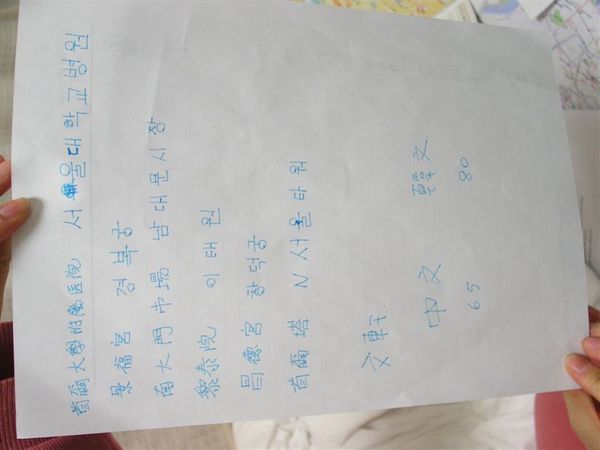 首爾大學附屬医院 서울대학교병원
景福宮 경복궁
南大門市場 남대문시장
黎泰院 이태원
昌德宮 창덕궁
首爾塔 N 서울타워
文軒
中文 韓文
65 80